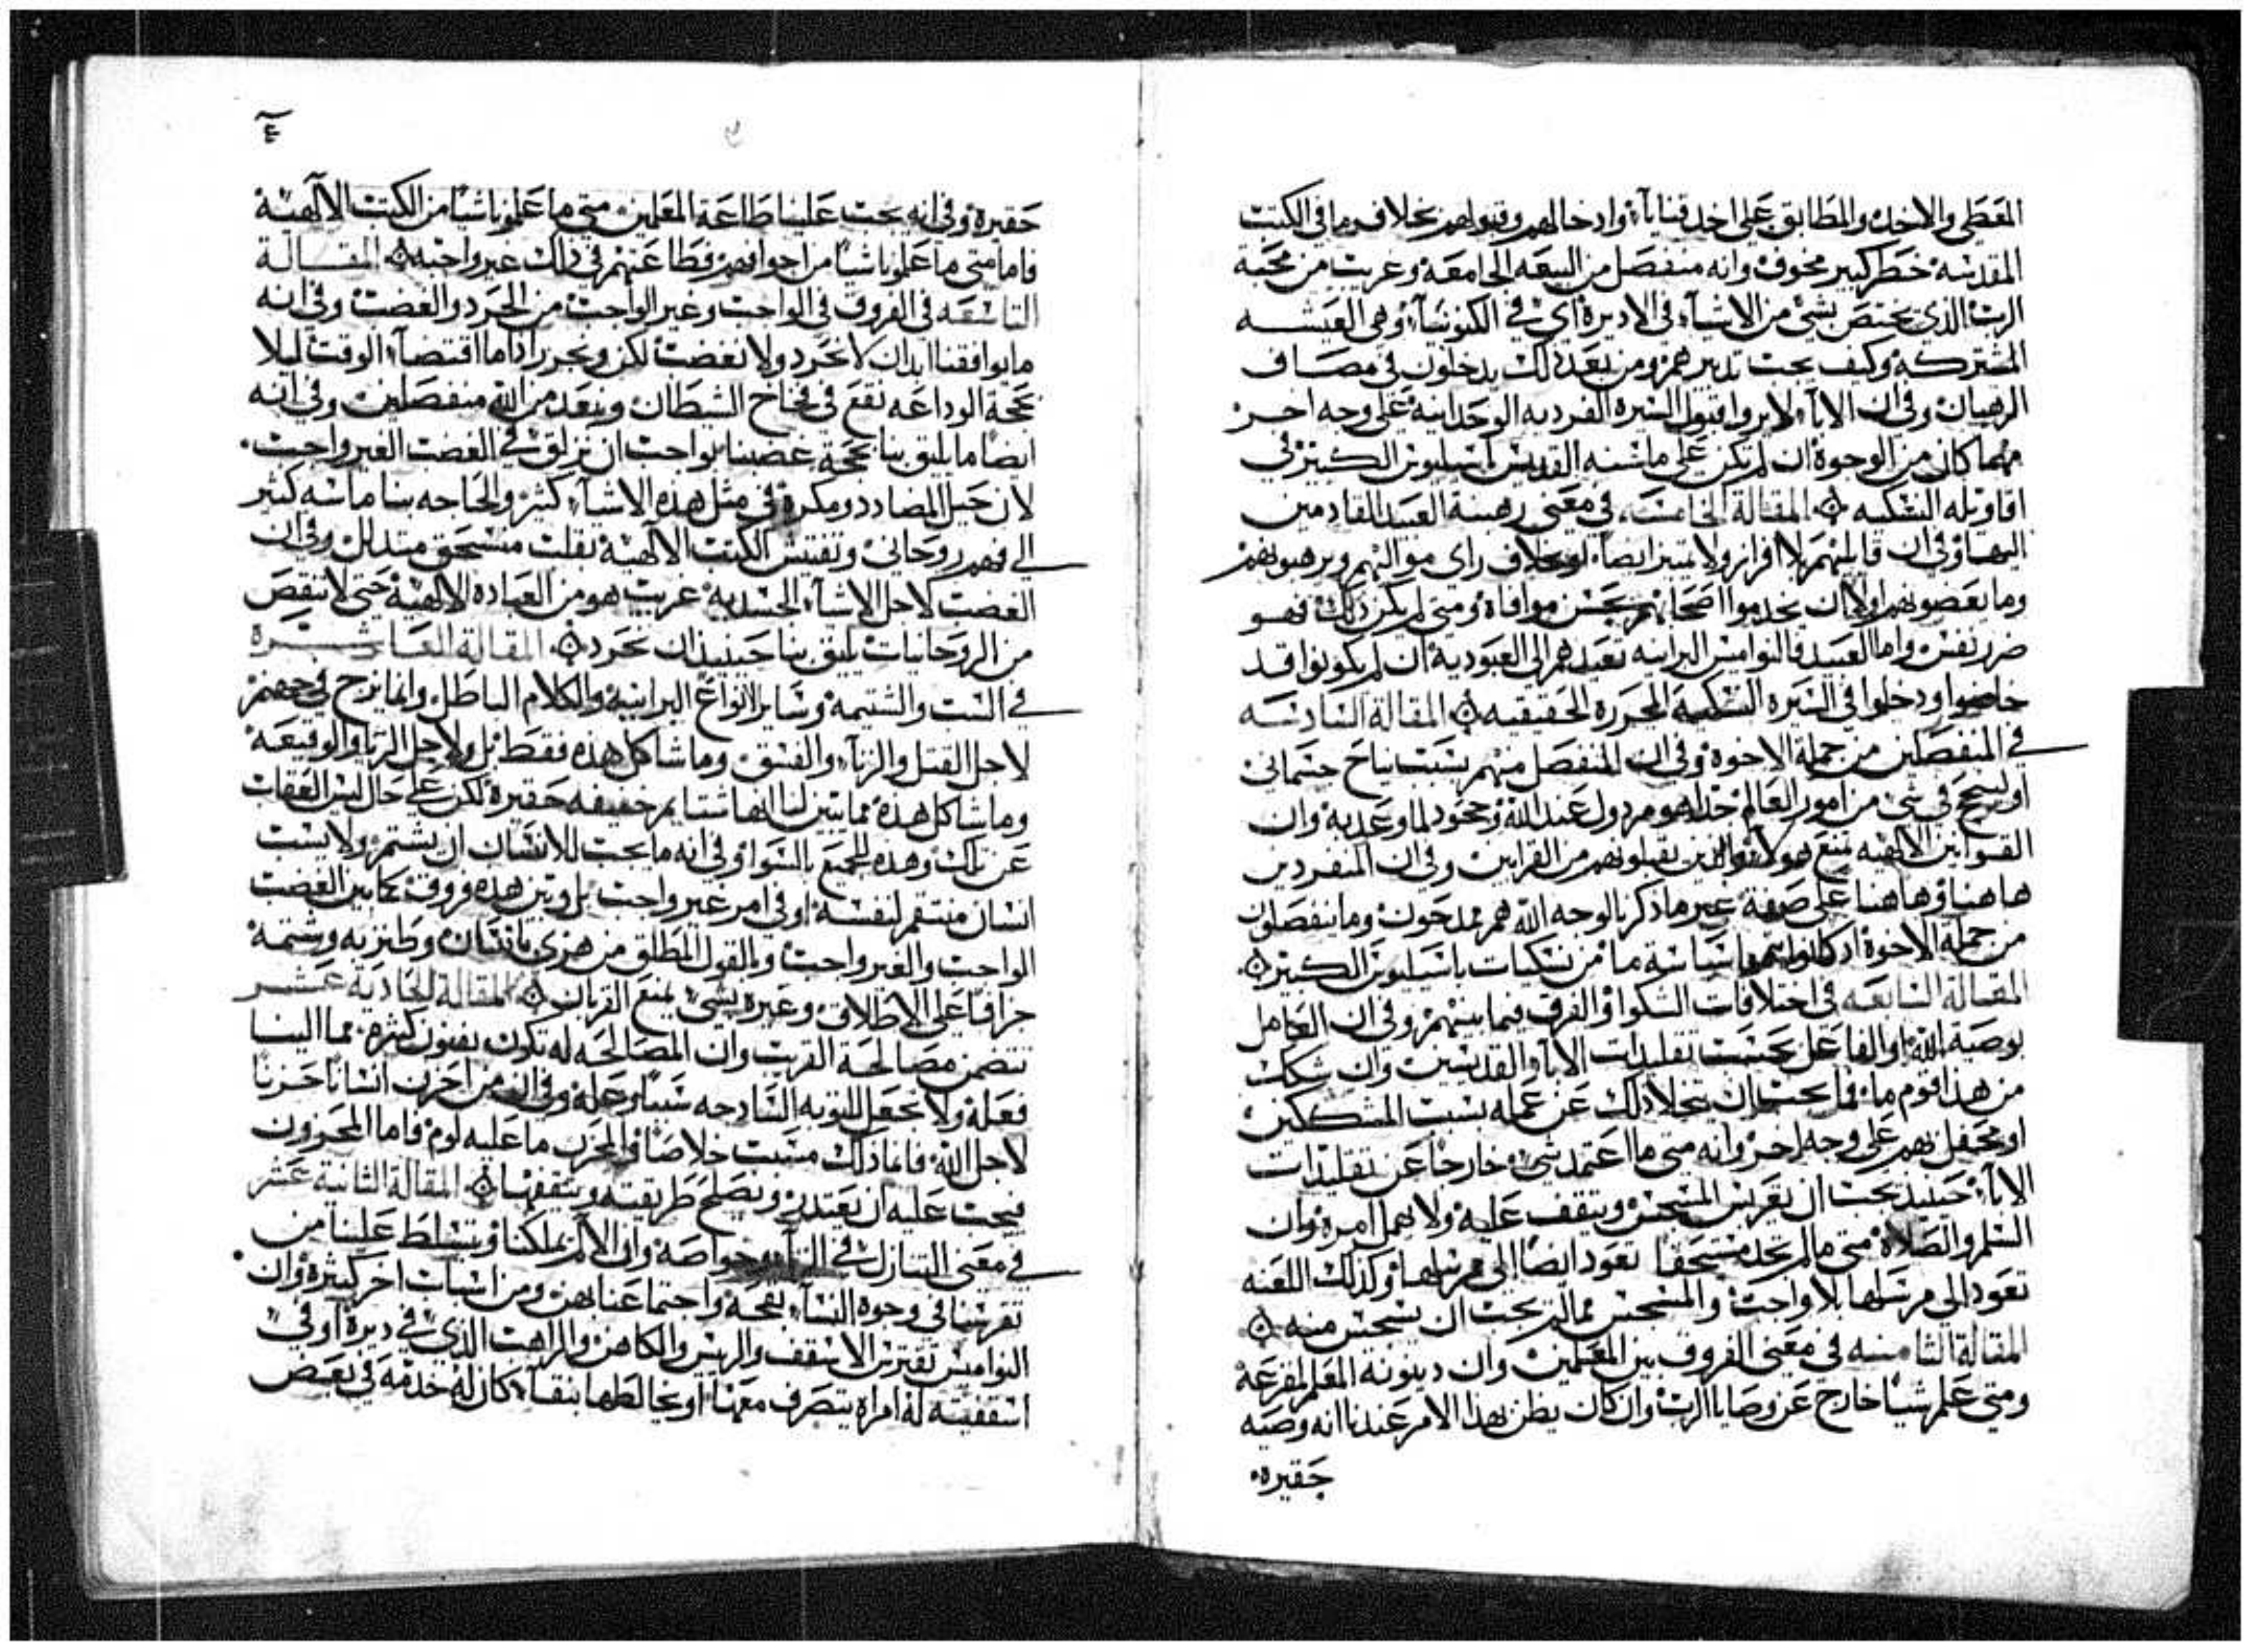 المعطي والاخد والمطابق على اخد قنايا وادخالهم وقبولهم بخلاف ما في الكتب
المقدسه خطر كبير مخوف وانه منفصل من البيعه الجامعة وغريب من محبة
الرب الذي يختص بشي من الاشيآ في الاديرة اي في الكنوبيآ وهي العيشــه
المشتركة وكيف يجب تدبيرهم ومن بعد ذلك يدخلون في مصــاف
الرهبان وفي ان الابآ لا يروا قبول السيرة الفرديه الوحدانية على وجه اخــر
مهما كان من الوجوه ان لم تكن على ما سنه القديس باسيليوس الكبير في
اقاويله النسكيه المقالة الخامسة في معنى رهبنة العبيد القادمين
اليها وفي ان قابليهم بلا افراز ولا تمييز ايضا بخلاف راي مواليهم ويرهبونهم
وما يعضونهم اولا ان يخدموا اصحابهم بحسن موافاة ومتى لم يكن ذلك فهــو
ضرر نفس واما العبيد فالنواميس البرانيه تعيدهم الى العبودية ان لم يكونوا قــد
خاضوا ودخلوا في السيرة النسكيه المحررة الحقيقيه المقالة السادسه
في المنفصلين من جملة الاخوة وفي ان المنفصل منهم بسبب نياح جسماني
او لسجح في شي من امور العالم هو مردول عند الله وجحود لما وعد به وان
القوانين الالهيه تمنع هولاء والذين يقبلونهم من القرابين وفي ان المنفردين
هاهنا وهاهنا على صفة غير ما ذكر بالوجه الله هم ممدحون وما ينفصلون
من جملة الاخوة اد كانوا سياسة ما من نسكيات باسيليوس الكبير
المقالة السابعه في اختلافات الشكوا والفرق فيما بينهم وفي ان العامل
بوصية الله او الفاعل بحسب تقليدات الابآ والقديسين وان شكك
من هذا قوم ما فما يجب ان يتخلا ذلك عن عمله بسبب المتشككين
او يحفل بهم على وجه اخر وانه متى ما اعتمد شي خارجا عن تقليدات
الابآ حينيد يجب ان يفريس المسجس ويتقف عليه ولا يهمل امره وان
السلم والصلاة متى ما لم تجد مستحقا تعود ايضا الى مرسلها وكذلك اللعنه
تعود الى مرسلها بلا واجب والمسجس مما لم يجب ان يسجس منه
المقالة الثامنه في معنى الفروق بين المعلمين وان دينونة المعلم لمفزعة
ومتى علم شيا خارج عن وصايا الرب وان كان يظن بهذا الامر عندنا انه وصيه
حقيره
٤
حقيرة وفي انه يجب علينا طاعة المعلمين متى ما علمونا شيا من الكتب الالهية
فاما متى ما علمونا شيا من اجوافهم فطاعتهم في ذلك غير واجبه المقــالة
التاسعه في الفروق في الواجب وغير الواجب من الحرد والغضب وفي انه
ما يوافقنا ابدا ان لا نحرد ولا نغضب لكن ونحرر اذا ما اقتضآ الوقت ليلا
بحجة الوداعه نقع في فخاخ الشيطان ونبعد من الله منفصلين وفي انه
ايضا ما يليق بنا بحجة غضبنا بواجب ان نزلق في الغضب الغير واجب
لان حيل المضادد ومكره في مثل هذه الاشيآ كثير والحاجه بنا ماسه كثير
الى فهم روحاني وتفتيش الكتب الالهية بقلب منسحق متدلل وفي ان
الغضب لاجل الاشيآ الجسديه غريب هو من العباده الالهية حتى لا ننقص
من الروحانيات يليق بنا حينيد ان نحرد المقالة العاشــرة
في السب والشتيمة وساير الانواع البرانية والكلام الباطل وانما نزج في جهنم
لاجل القتل والزنآ والفسق وما شاكل هذه فقط بل ولاجل الريا والوقيعة
وما شاكل هذه مما يبين لنا انها شتايم خفيفه حقيرة لكن على حال ليس العقاب
عن تلك وهذه للجميع بالسوا وفي انه ما يجب للانسان ان يشتم ولا يسب
انسان منتقم لنفسه او في امر غير واجب بل وبين هذه فروق كما بين الغضب
الواجب والغير واجب وبالقول المطلق من هزي بانسان وطنز به وشتمه
جزافا على الاطلاق وعيره بشي يمنع القربان المقالة الحادية عشــر
تتضمن مصالحة القريب وان المصالحه له تكون بفنون كثيرة مما الينــا
فعله ولا نجعل التوبه الساذجه سببا وحله وفي انه من احزن انسانا حزنا
لاجل الله فانما ذلك مسبب خلاصا والمحزن ما عليه لوم فاما المحزون
فيجب عليه ان يعتدر ويصلح طريقته ويتقفها المقالة الثانية عشر
في معنى التنازل في الزنآ وخواصه وان الالم يملكنا ويتسلط علينا من
تفرسنا في وجوه النسآ بقحة واجتماعنا بهن ومن اسباب اخر كثيرة وان
النواميس تفترس الاسقف والريس والكاهن والراهب الذي في ديره او في
اسقفيته له امراه يتصرف معها او يخالطها بنقآ كان له خدمة في بعض